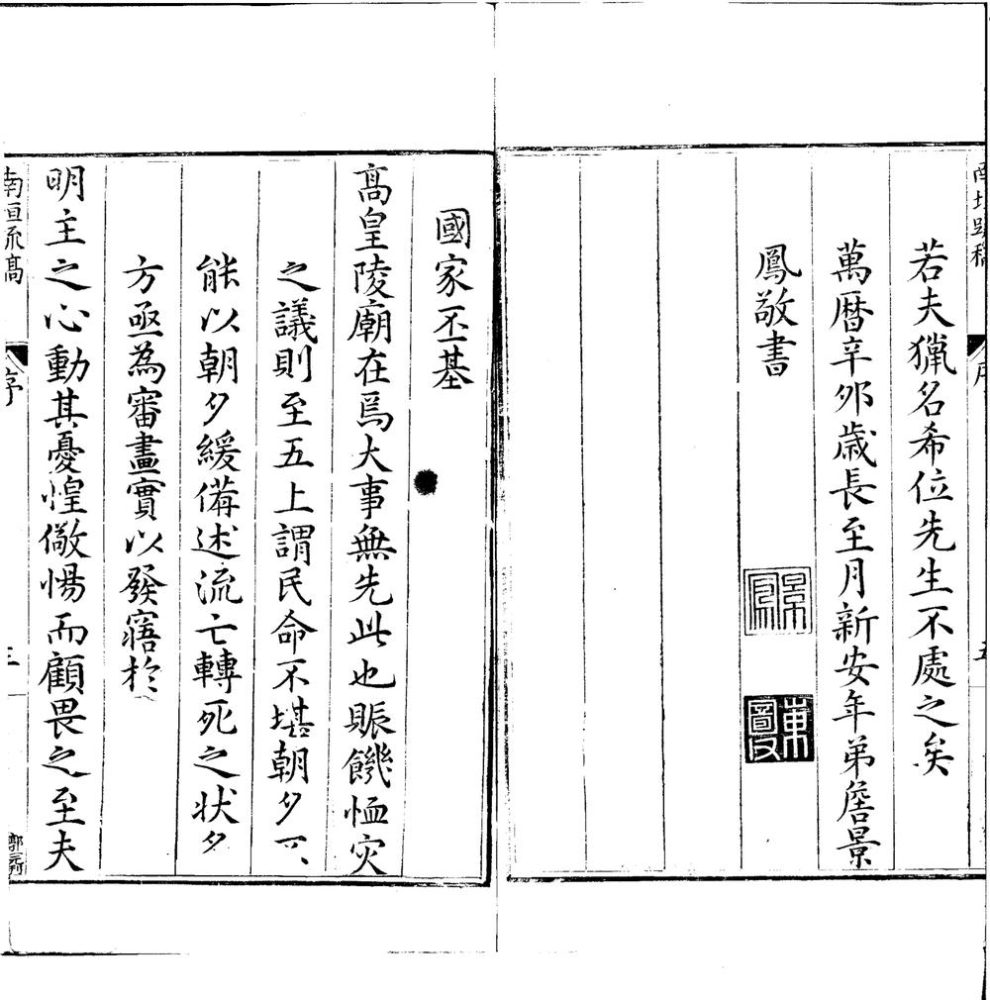 南垣疏稿
序
五
若夫獵名希位先生不處之矣
萬曆辛夘歲長至月新安年弟詹景
鳳敬書
景鳳
東圖父
國家丕基
髙皇陵廟在焉大事無先此也賑饑恤灾
之議則至五上謂民命不堪朝夕不
能以朝夕緩備述流亡轉死之状夕
方亟為審畫實以發寤於
明主之心動其憂惶儆惕而顧畏之至夫
南垣疏髙
序
三